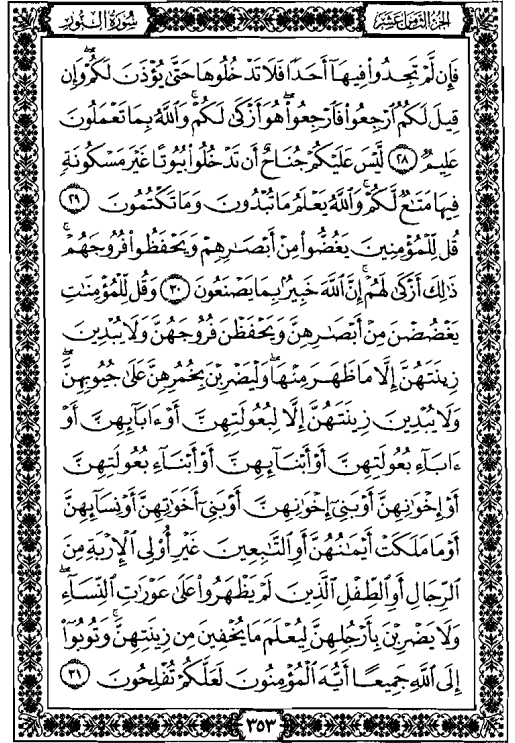 سُورَةُ النُّورِ
الجُزْءُ الثَّامِنَ عَشَرَ
فَإِن لَّمْ تَجِدُوا۟ فِيهَآ أَحَدًا فَلَا تَدْخُلُوهَا حَتَّىٰ يُؤْذَنَ لَكُمْ ۖ وَإِن
قِيلَ لَكُمُ ٱرْجِعُوا۟ فَٱرْجِعُوا۟ ۖ هُوَ أَزْكَىٰ لَكُمْ ۚ وَٱللَّهُ بِمَا تَعْمَلُونَ
عَلِيمٌ ٢٨ لَّيْسَ عَلَيْكُمْ جُنَاحٌ أَن تَدْخُلُوا۟ بُيُوتًا غَيْرَ مَسْكُونَةٍ
فِيهَا مَتَٰعٌ لَّكُمْ ۚ وَٱللَّهُ يَعْلَمُ مَا تُبْدُونَ وَمَا تَكْتُمُونَ ٢٩
قُل لِّلْمُؤْمِنِينَ يَغُضُّوا۟ مِنْ أَبْصَٰرِهِمْ وَيَحْفَظُوا۟ فُرُوجَهُمْ ۚ
ذَٰلِكَ أَزْكَىٰ لَهُمْ ۗ إِنَّ ٱللَّهَ خَبِيرٌۢ بِمَا يَصْنَعُونَ ٣٠ وَقُل لِّلْمُؤْمِنَٰتِ
يَغْضُضْنَ مِنْ أَبْصَٰرِهِنَّ وَيَحْفَظْنَ فُرُوجَهُنَّ وَلَا يُبْدِينَ
زِينَتَهُنَّ إِلَّا مَا ظَهَرَ مِنْهَا ۖ وَلْيَضْرِبْنَ بِخُمُرِهِنَّ عَلَىٰ جُيُوبِهِنَّ ۖ
وَلَا يُبْدِينَ زِينَتَهُنَّ إِلَّا لِبُعُولَتِهِنَّ أَوْ ءَابَآئِهِنَّ أَوْ
ءَابَآءِ بُعُولَتِهِنَّ أَوْ أَبْنَآئِهِنَّ أَوْ أَبْنَآءِ بُعُولَتِهِنَّ
أَوْ إِخْوَٰنِهِنَّ أَوْ بَنِىٓ إِخْوَٰنِهِنَّ أَوْ بَنِىٓ أَخَوَٰتِهِنَّ أَوْ نِسَآئِهِنَّ
أَوْ مَا مَلَكَتْ أَيْمَٰنُهُنَّ أَوِ ٱلتَّٰبِعِينَ غَيْرِ أُو۟لِى ٱلْإِرْبَةِ مِنَ
ٱلرِّجَالِ أَوِ ٱلطِّفْلِ ٱلَّذِينَ لَمْ يَظْهَرُوا۟ عَلَىٰ عَوْرَٰتِ ٱلنِّسَآءِ ۖ
وَلَا يَضْرِبْنَ بِأَرْجُلِهِنَّ لِيُعْلَمَ مَا يُخْفِينَ مِن زِينَتِهِنَّ ۚ وَتُوبُوٓا۟
إِلَى ٱللَّهِ جَمِيعًا أَيُّهَ ٱلْمُؤْمِنُونَ لَعَلَّكُمْ تُفْلِحُونَ ٣١
٣٥٣